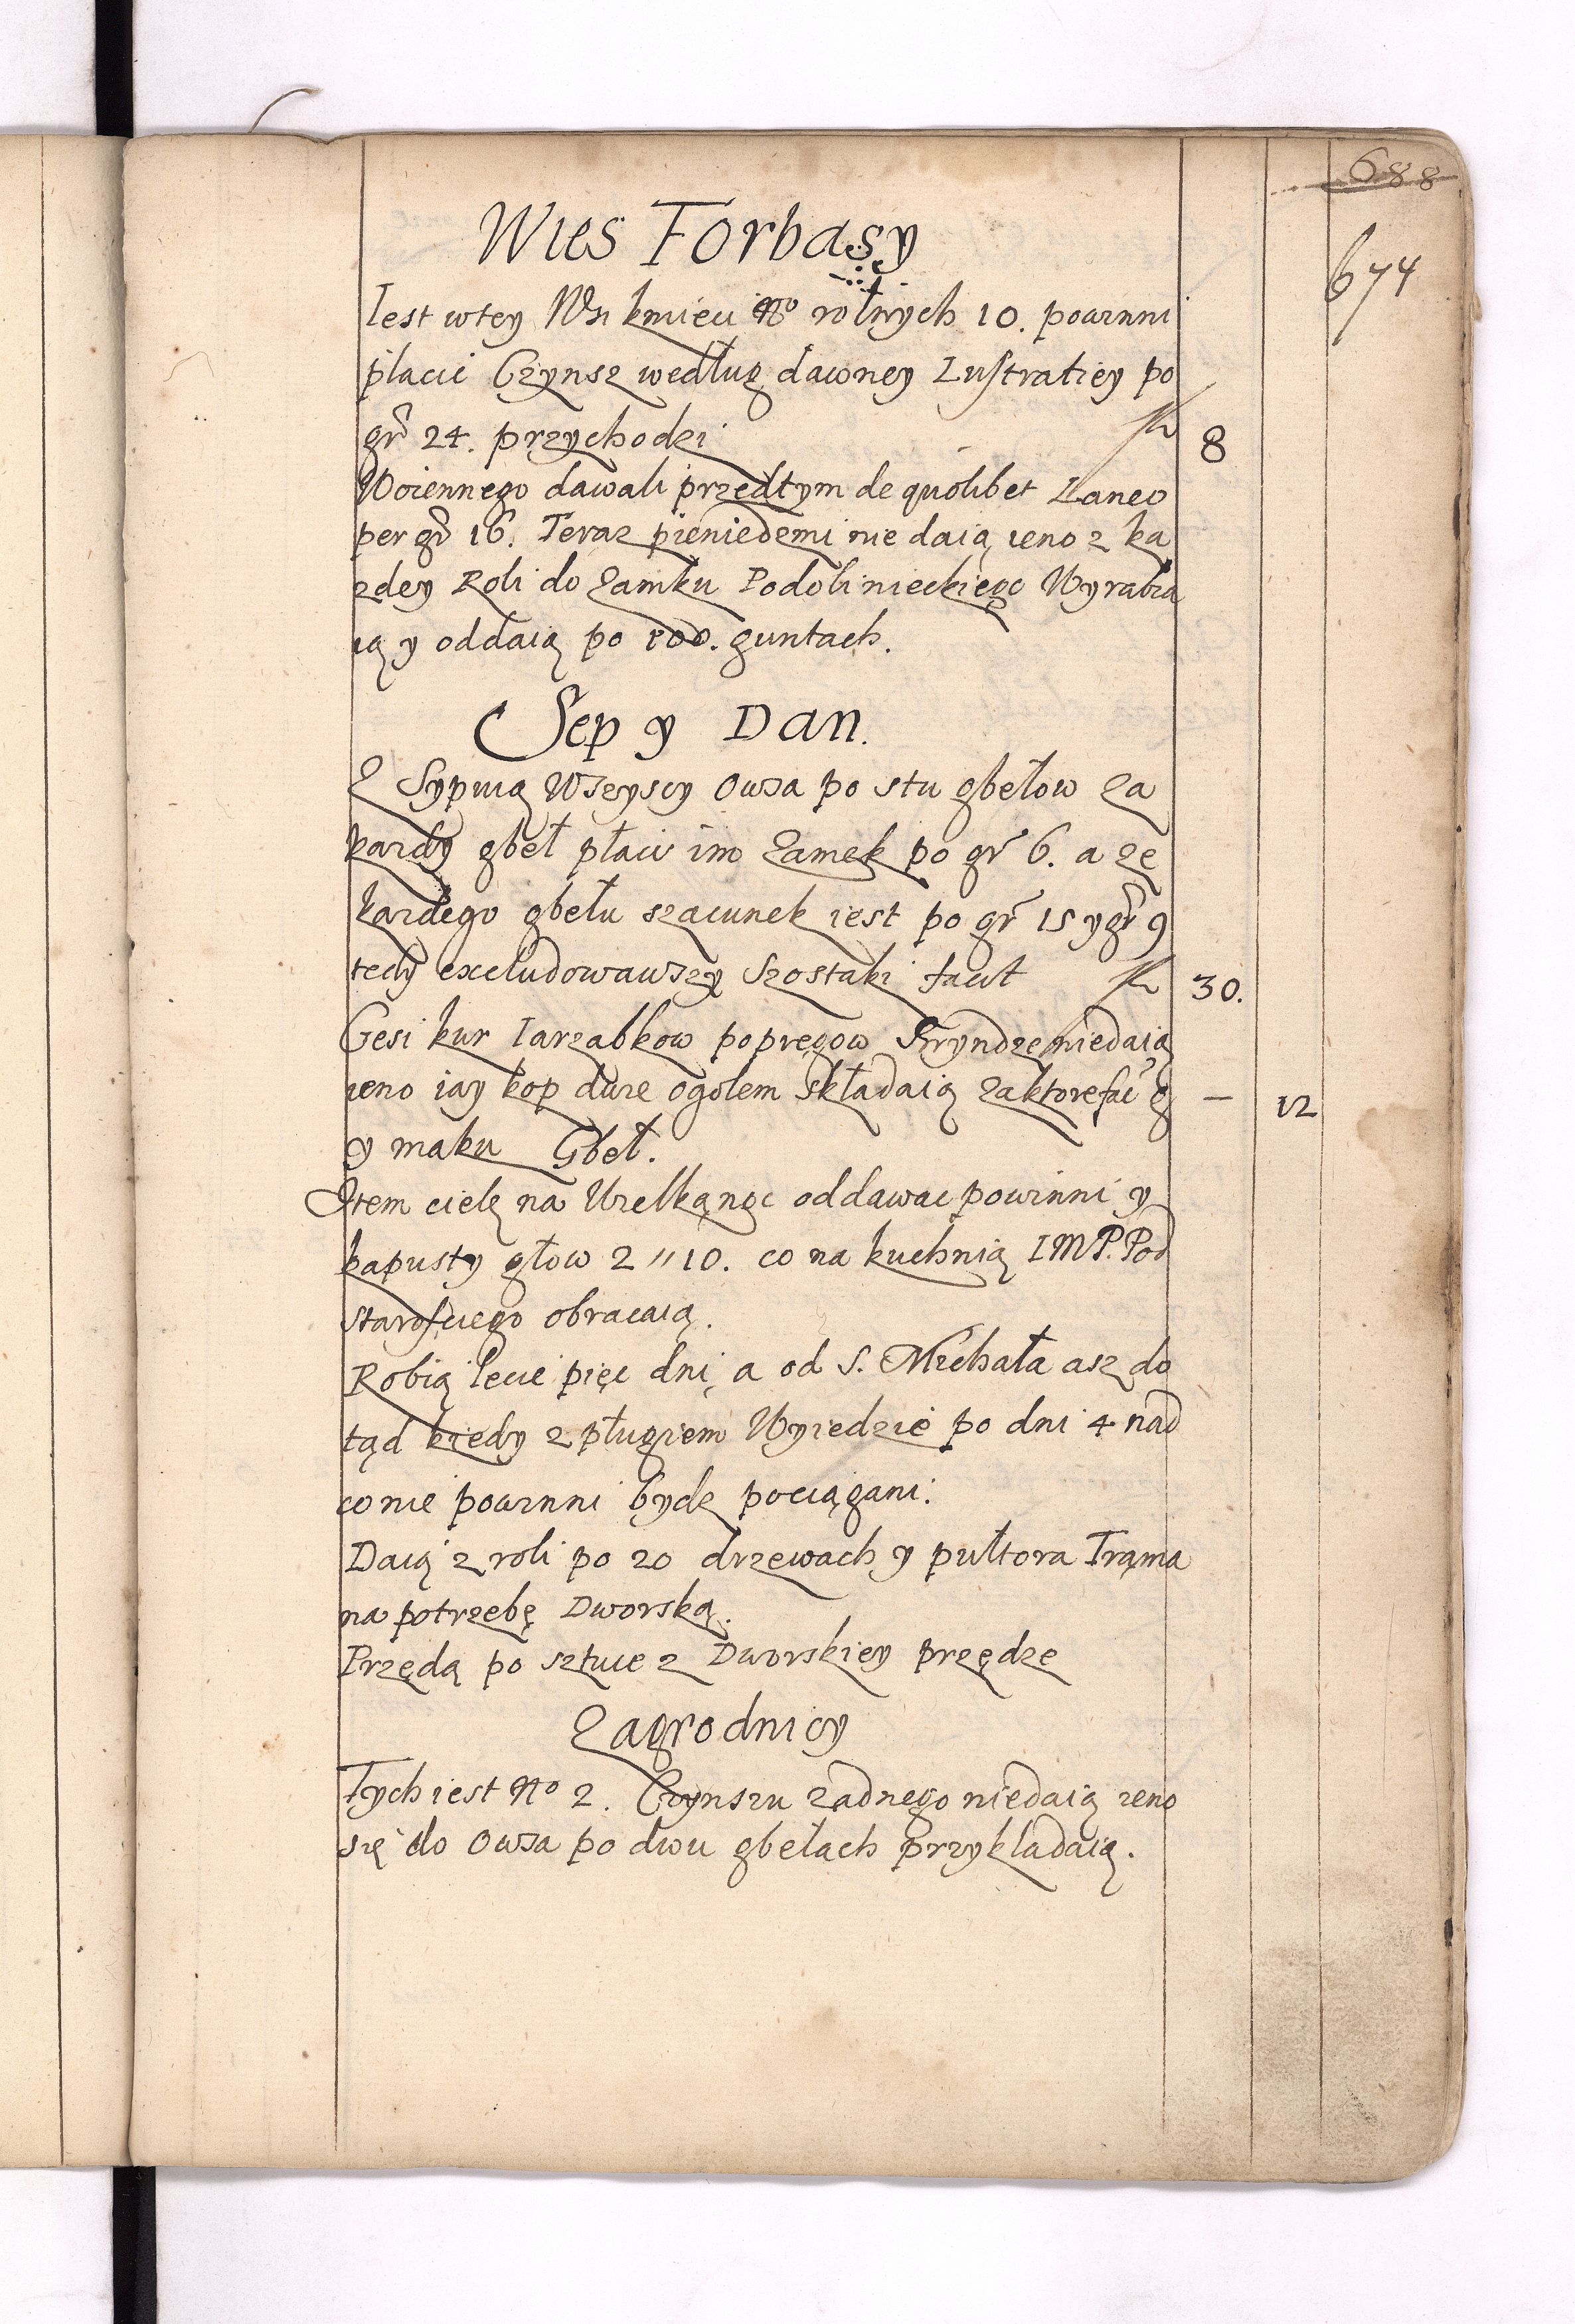 688
674
Wies Forbasy
Iest w tey Wsi kmieci No rolnych 10. powinni
płacić Czynsz według dawney Lustratiey po
gr 24. przychodzi fl 8
Woiennego dawali przedtym de quolibet Laneo
per gr 16. Teraz pieniedzmi nie daią ieno z ka
zdey Roli do Zamku Podolinieckiego Wyrabia
ią y oddaią po 100. guntach.
Sep y Dan.
Z Sypuią Wszyscy Owsa po stu gbełow Za
kazdy gbeł płaci im Zamek po gr 6. a ze
kazdego gbełu szacunek iest po gr 15 y gr 9
tedy excludowawszy Szostaki facit fl 30.
Gesi kur Iarząbkow popręgow Bryndze niedaią
ieno iay kop dwie ogołem składaią za ktore fac g — 12
y maku Gbeł.
Item cielę na Wielkąnoc oddawac powinni y
kapusty głow 2 " 10. co na kuchnią IMP. Pod
starosciego obracaią.
Robią lecie pięc dni, a od S. Michała asz do
tąd kiedy z pługiem Wyiedzie po dni 4 nad
co nie powinni bydz pociągani.
Daią z roli po 20 drzewach y pułtora Trama
na potrzebę Dworską.
Przędą po sztuce z Dworskiey przędze
Zagrodnicy
Tych iest No 2. Czynszu zadnego niedaią ieno
się do Owsa po dwu gbełach przykładaią.